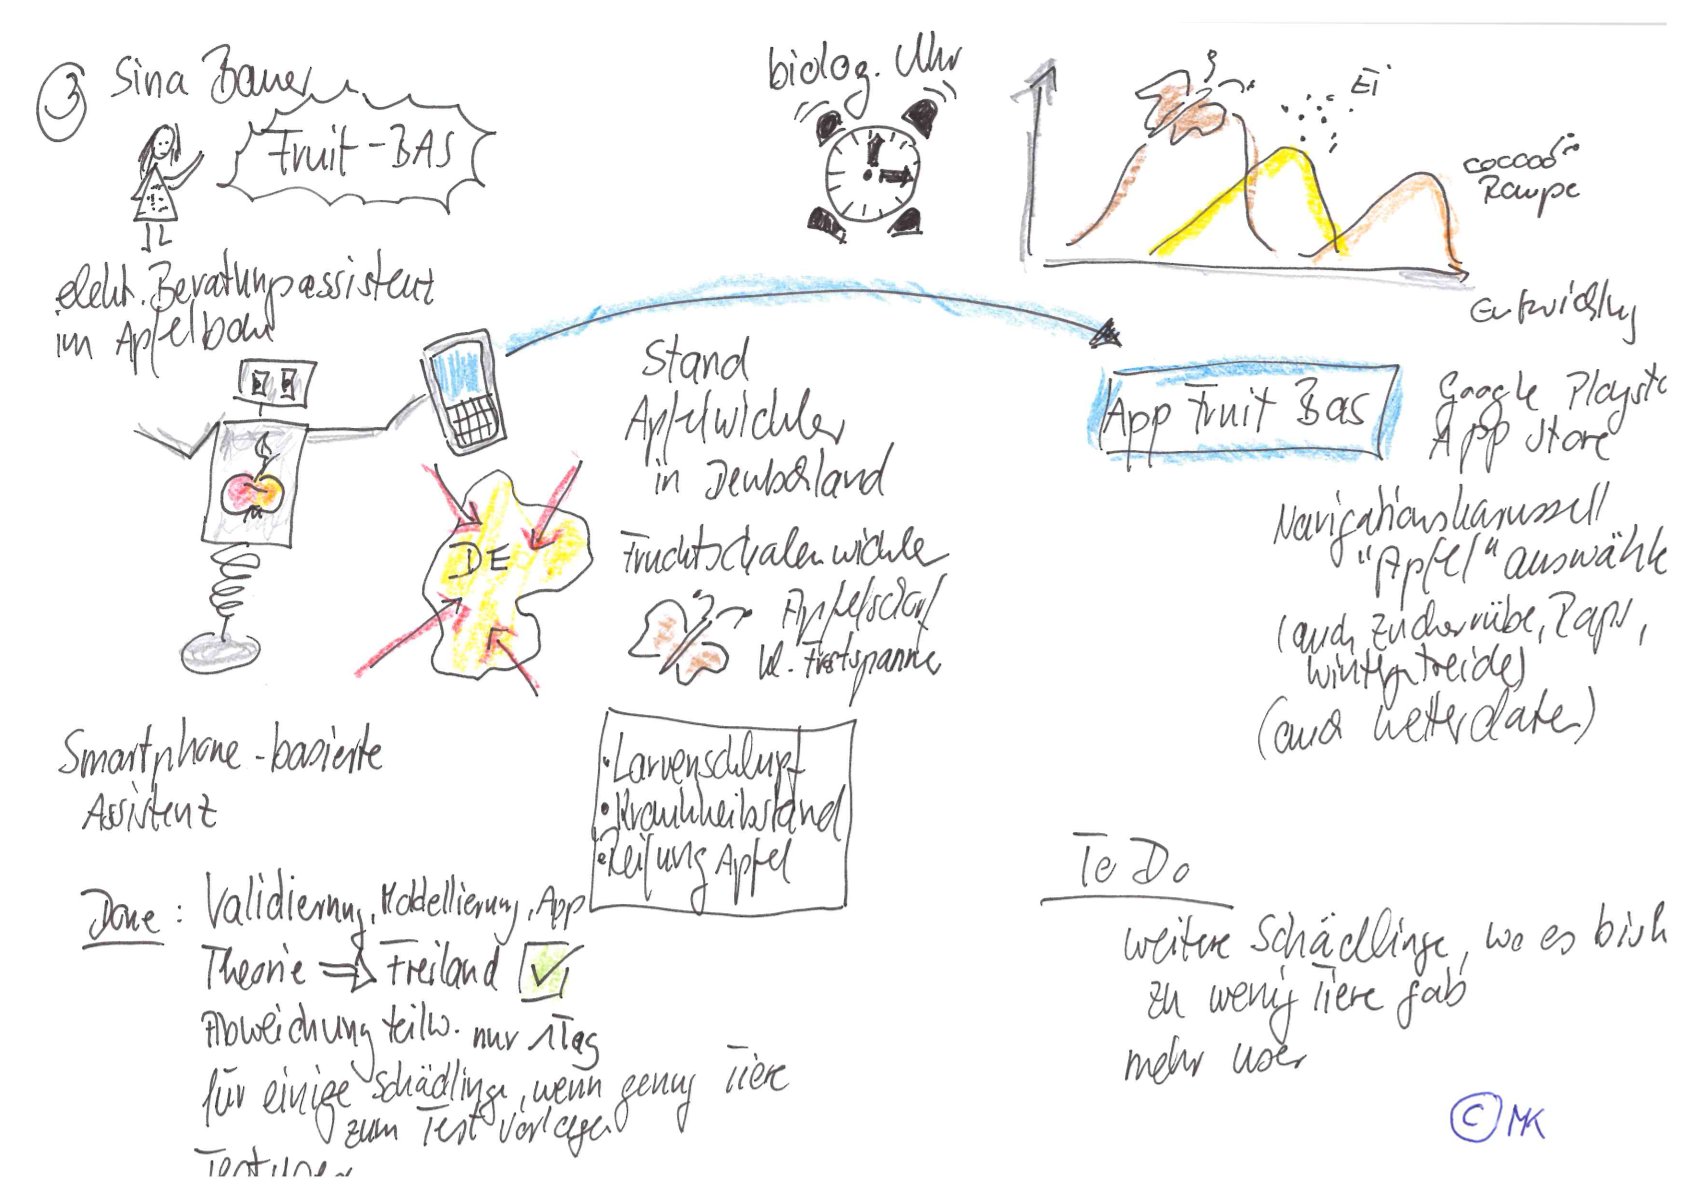 3 Sina Bauer
Fruit-BAS
elekt. Beratungsassistent
im Apfelbau
biolog. Uhr
Ei
Raupe
Entwicklung
Stand
Apfelwickler
in Deutschland
DE
Fruchtschalenwickler
Apfelschorf
kl. Frostspanner
• Larvenschlupf
• Krankheitsstand
• Reifung Apfel
App Fruit Bas
Google Playsto
App Store
Navigationskarussell
"Apfel" auswähle
(auch Zuckerrübe, Raps,
Wintergetreide)
(auch Wetterdaten)
Smartphone-basierte
Assistenz
Done: Validierung, Modellierung, App
Theorie ⇒ Freiland ✓
Abweichung teilw. nur 1 Tag
für einige Schädlinge, wenn genug Tiere
zum Test vorlagen
To Do
weitere Schädlinge, wo es bish
zu wenig Tiere gab
mehr User
© MK